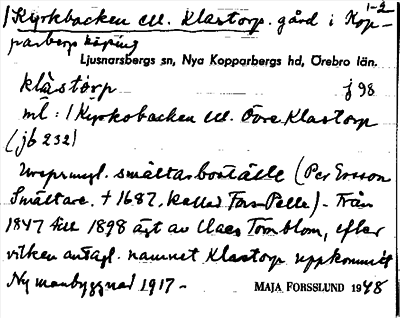 1-2
1 Kyrkbacken ell. Klastorp. gård i Kop-
parberg köping
Ljusnarsbergs sn, Nya Kopparbergs hd, Örebro län.
klástòrp j 98
ml: 1 Kyrkobacken ell. Övre Klastorp
(jb 232)
Ursprungl. smältarboställe (Per Ersson
Smältare. † 1687, kallad Fors-Pelle) - Från
1847 till 1898 ägt av Claes Törnblom, efter
vilken antagl. namnet Klastorp uppkommit
Ny manbyggnad 1917 -
MAJA FORSSLUND 1948